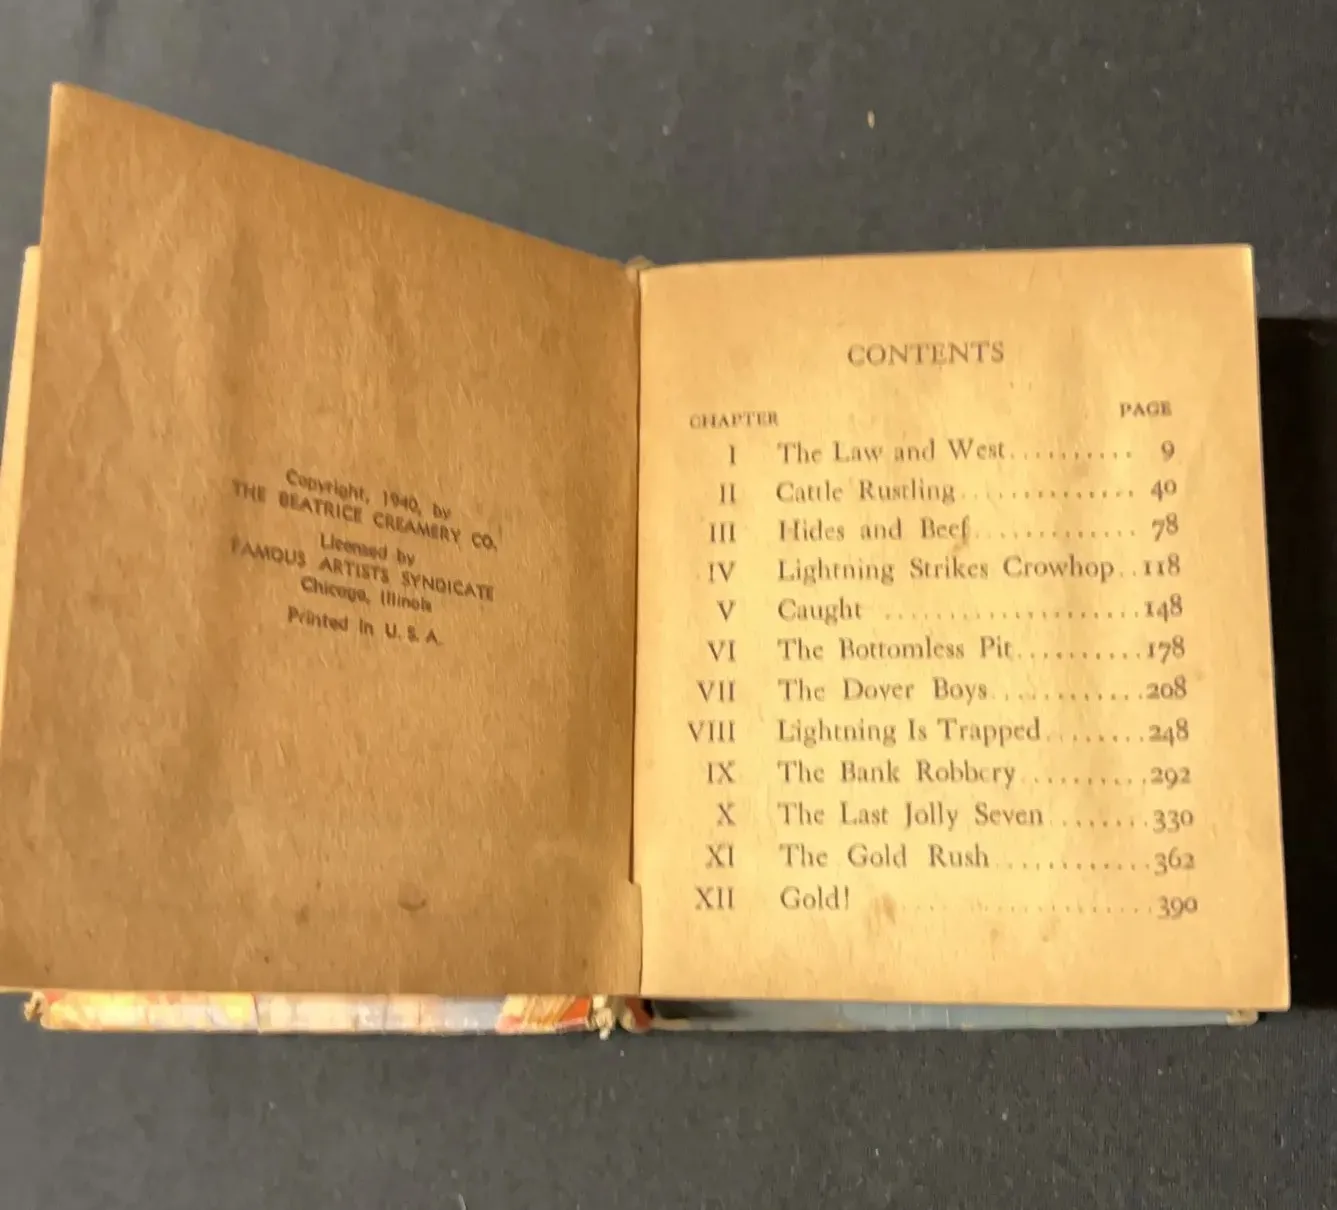 Copyright, 1940, by
THE BEATRICE CREAMERY CO.
Licensed by
FAMOUS ARTISTS SYNDICATE
Chicago, Illinois
Printed in U. S. A.
CONTENTS
CHAPTER PAGE
I The Law and West.......... 9
II Cattle Rustling.............. 40
III Hides and Beef............. 78
IV Lightning Strikes Crowhop..118
V Caught ....................148
VI The Bottomless Pit..........178
VII The Dover Boys............208
VIII Lightning Is Trapped........248
IX The Bank Robbery..........292
X The Last Jolly Seven........330
XI The Gold Rush............362
XII Gold! ....................390